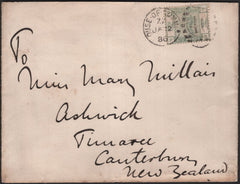 To
Miss Mary Millais
Ashwick
Timaru
Canterbury
New Zealand
JA 12
86